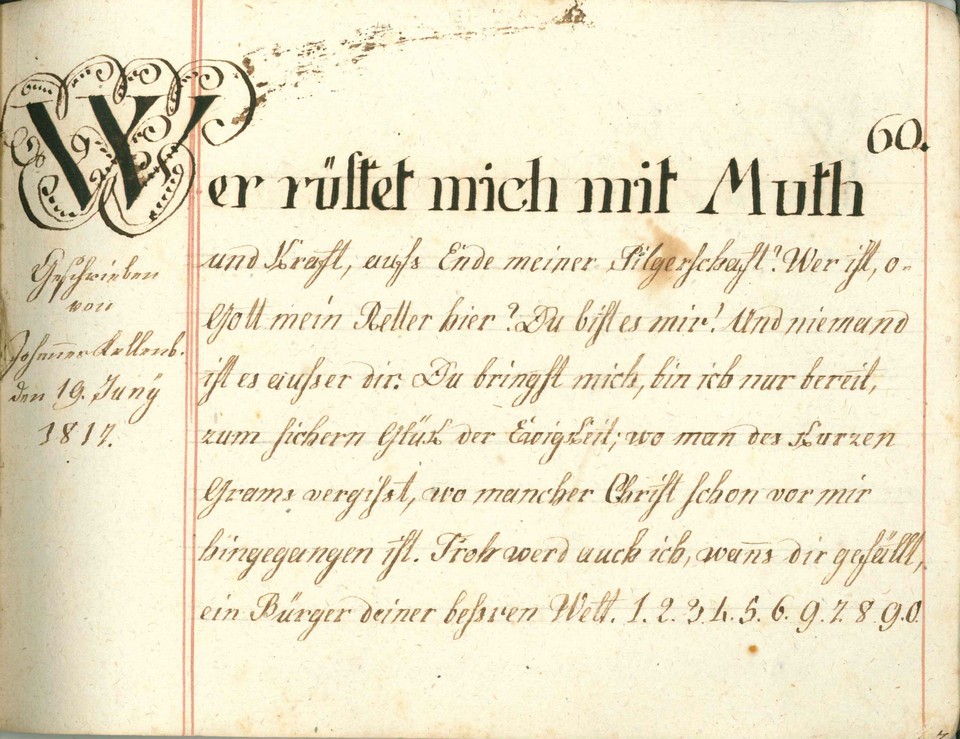 60.
Wer rüstet mich mit Muth
und Kraft, aufs Ende meiner Pilgerschaft? Wer ist, o-
Gott mein Retter hier? Du bist es mir! Und niemand
ist es ausser dir. Du bringst mich, bin ich nur bereit,
zum sichern Glük der Ewigkeit; wo man des Kurzen
Grams vergisst, wo mancher Christ schon vor mir
hingegangen ist. Froh werd auch ich, wañs dir gefällt,
ein Bürger deiner bessren Welt. 1. 2. 3. 4. 5. 6. 9. 7. 8 9. 0.
Geschrieben
von
Johannes Kellenb.
den 19. Juny
1817.